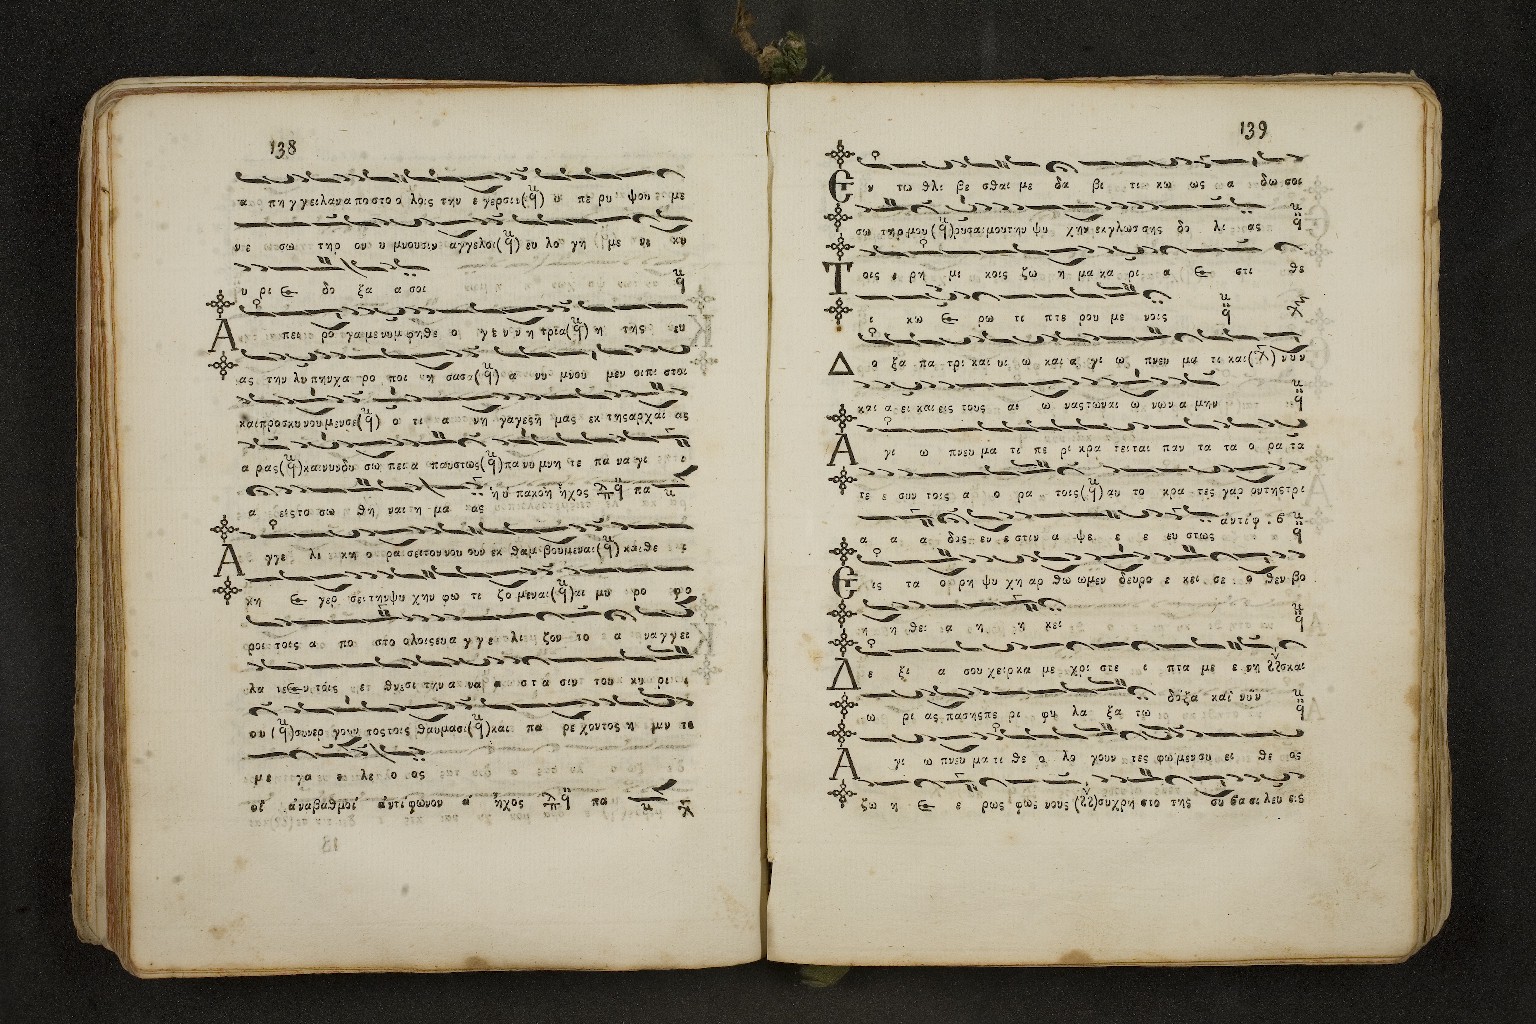 138
α πηγγειλαναποστο ο λοις την ε γερσιν υ πε ρυ ψου με
νε σω τηρ ο υ υ μνουσιν αγγελοι ευ λο γη με νε κυ
υ ρι ε δο ξα α σοι
Α πει ρο γαμενυμφηθε ο γεννητρια η της ευ
ας την λυπηνχα ρο ποι η σασα α νυ μνου μεν οιπι στοι
καιπροσκυνουμενσε ο τι α νη γαγεςη μας εκ τηςαρχαι ας
α ρας καινυνδυ σω πει α παυστως πανυμνη τε πα να γι
ἡ ὑπακοη ἦχος πα
α ειςτο σω θη ναι η μα ας
Α γγε λι κη ο ρα σειτοννουν εκ θαμβουμεναι καιθε ε
κη ε γερ σειτηνψυ χην φω τι ζομεναι αι μυ ρο φο
ροι τοις α πο στο ολοιςευα γγε λι ζον το ο α ναγγει
λα τεεντοις ετ θνεσι την α να α στα σιν του κυ ρι ι
ου συνερ γουν τοςτοις θαυμασι και πα ρεχοντος η μιν το
με γα ε λε ο ος
οἱ ἀναβαθμοί ἀντίφωνον α ἦχος πα
139
Ε ν τω θλι βε σθαι με δα βι τι κω ως α α δω σοι
σω τηρμου ρυσαιμουτην ψυ χην εκγλωσσης δο λι ας
Τ οις ε ρη μι κοις ζω η μα κα ρι α ε στι θε
ι κω ε ρω τι πτε ρου με νοις
Δ ο ξα πα τρι και υι ω και α γι ω πνευ μα τι και νυν
και α ει και εις τους αι ω νας των αι ω νων α μην
Α γι ω πνευ μα τι πε ρι κρα τειται παν τα τα ο ρα τα
τε ε συν τοις α ο ρα τοις αυ το κρα τες γαρ οντηςτρι
ἀντίφ. β
α α α δος εν ε στιν α ψε ε ε ευ στως
Ε ις τα ο ρη ψυ χη αρ θω ωμεν δευρο ε κει σε ο θεν βο
η η θει α η η κει
Δ ε ξι α σου χειρ κα με χρι στε ι πτα με ε νη σκαι
δόξα καὶ νῦν
ω ρι ας πασηςπε ρι φυ λα ξα τω
Α γι ω πνευ μα τι θε ο λο γουν τες φωμενσυ ει θε ος
ζω η ε ε ρως φως νους συχρη στο της συ βα σι λευ εις